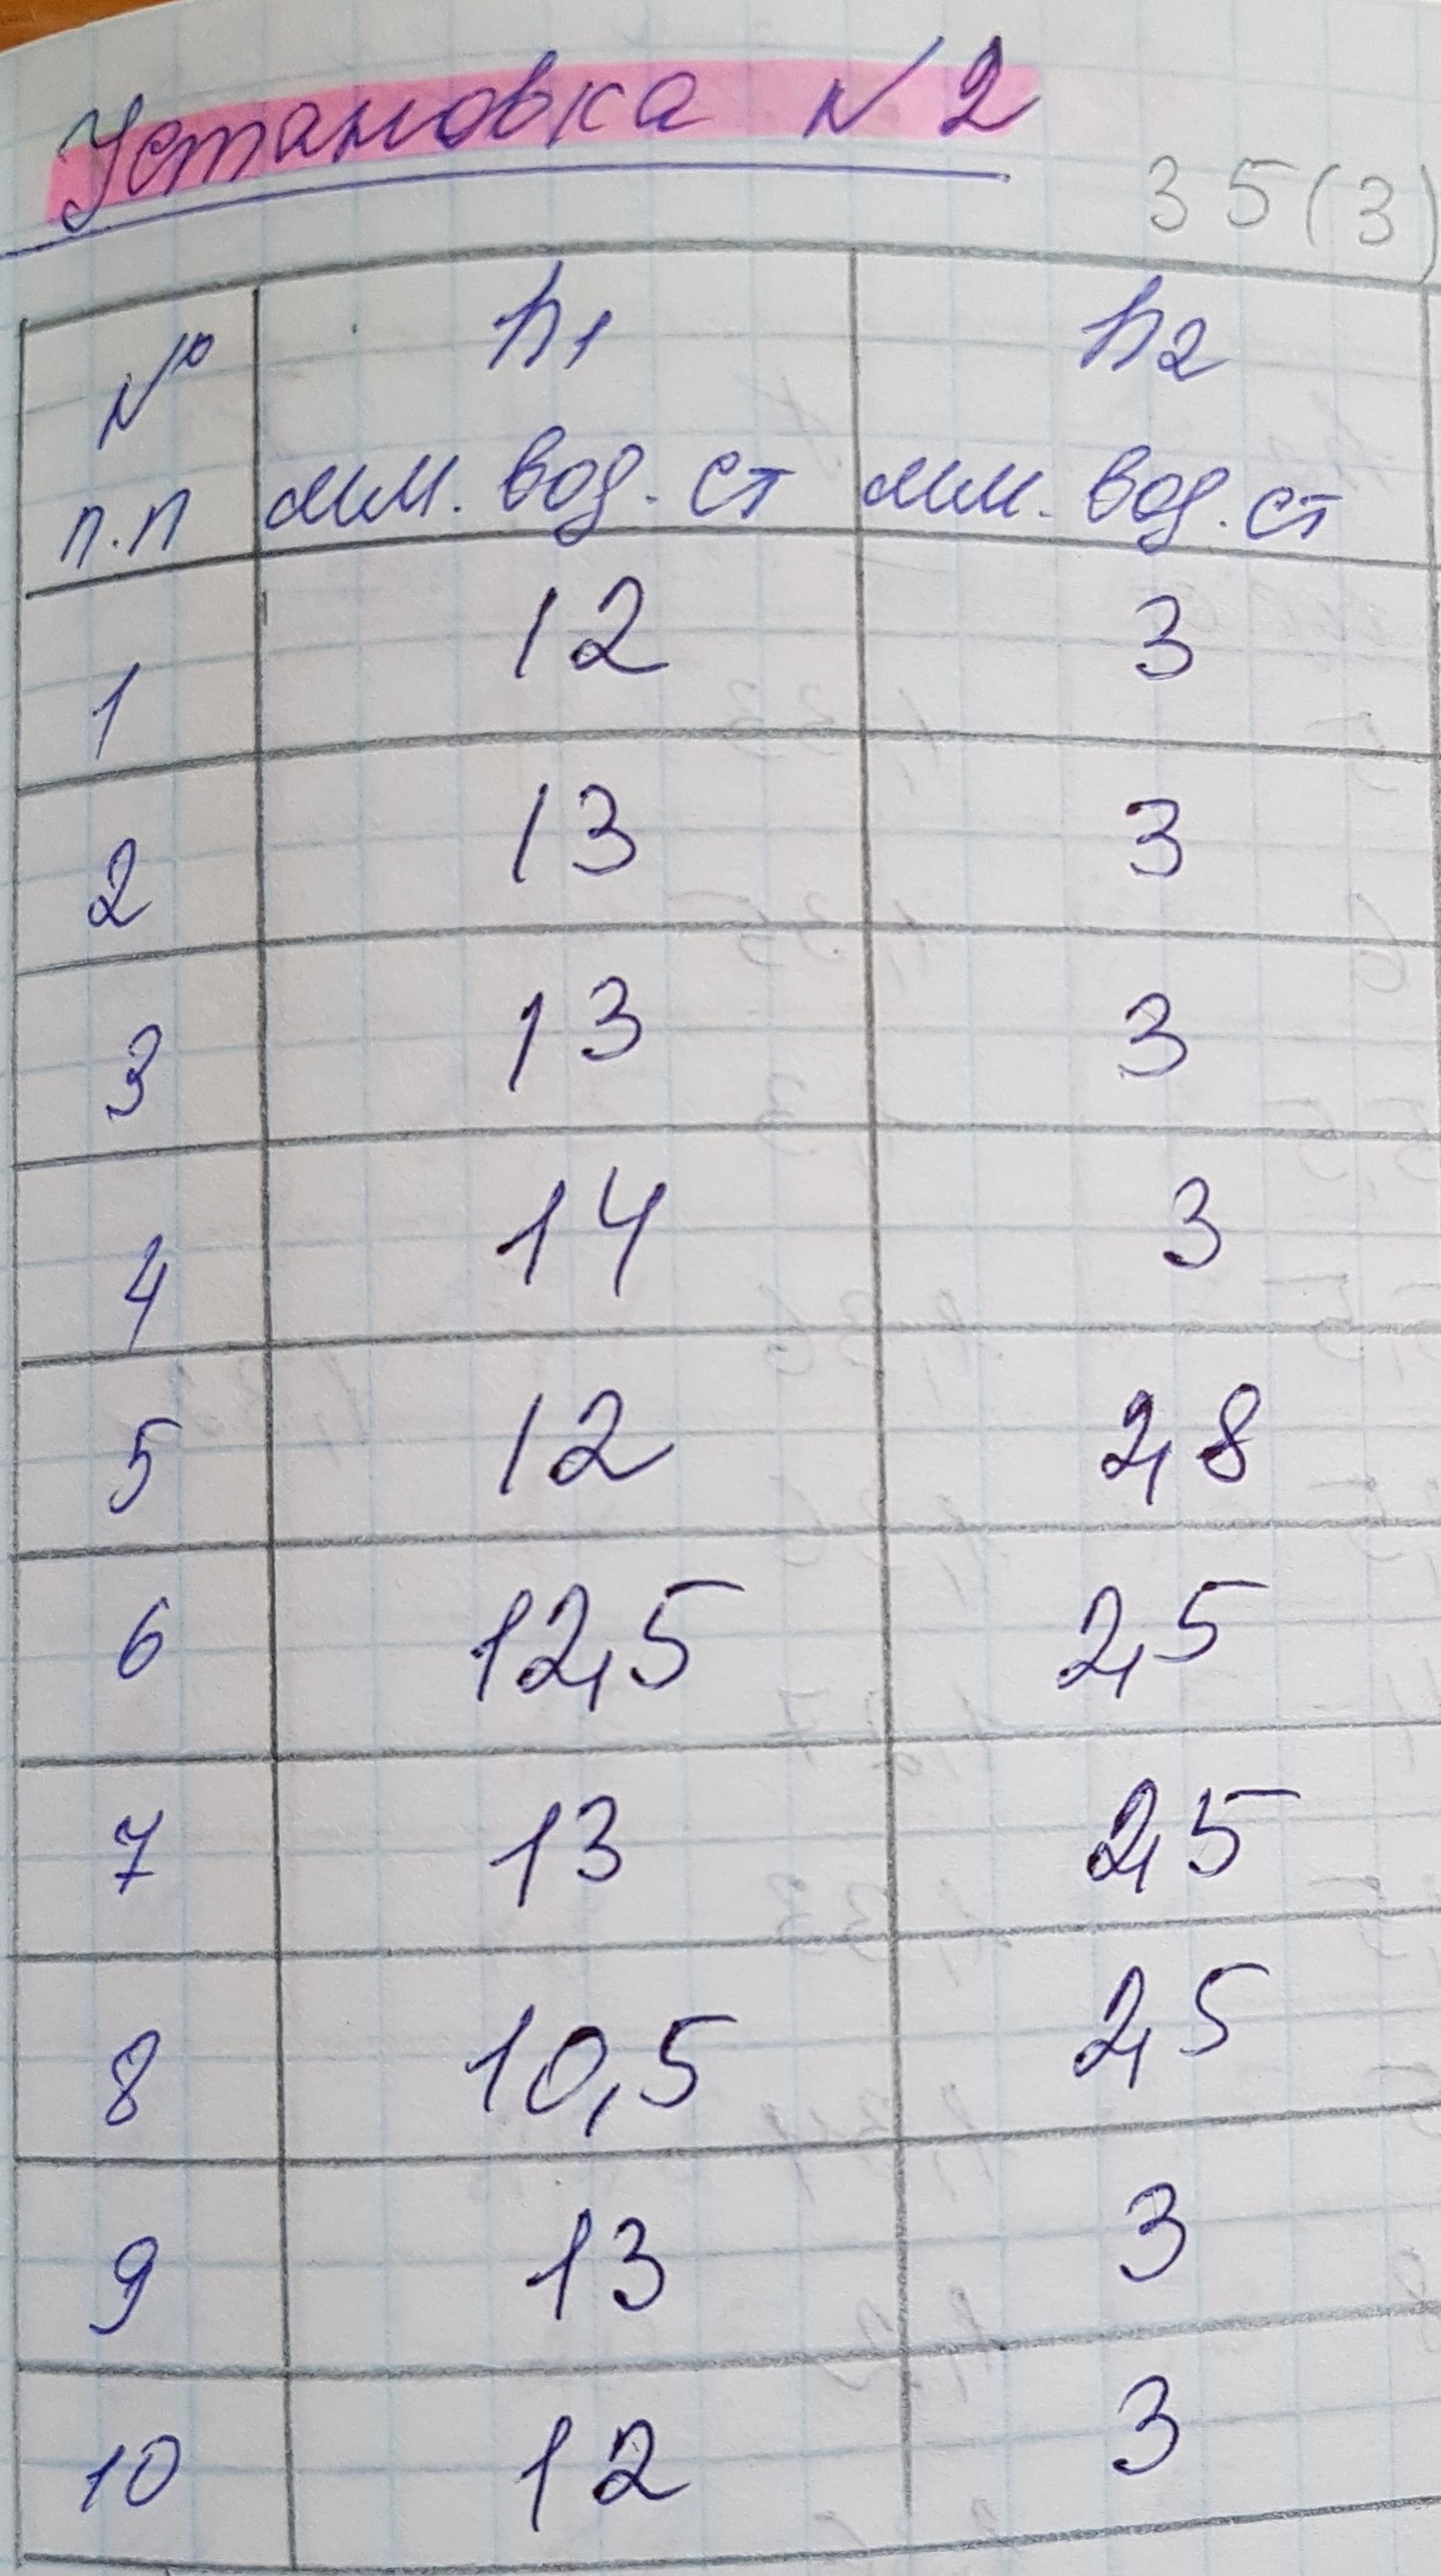 Установка № 2
35(3)
№ h1 h2
п.п мм. вод. ст мм. вод. ст
1 12 3
2 13 3
3 13 3
4 14 3
5 12 2,8
6 12,5 2,5
7 13 2,5
8 10,5 2,5
9 13 3
10 12 3